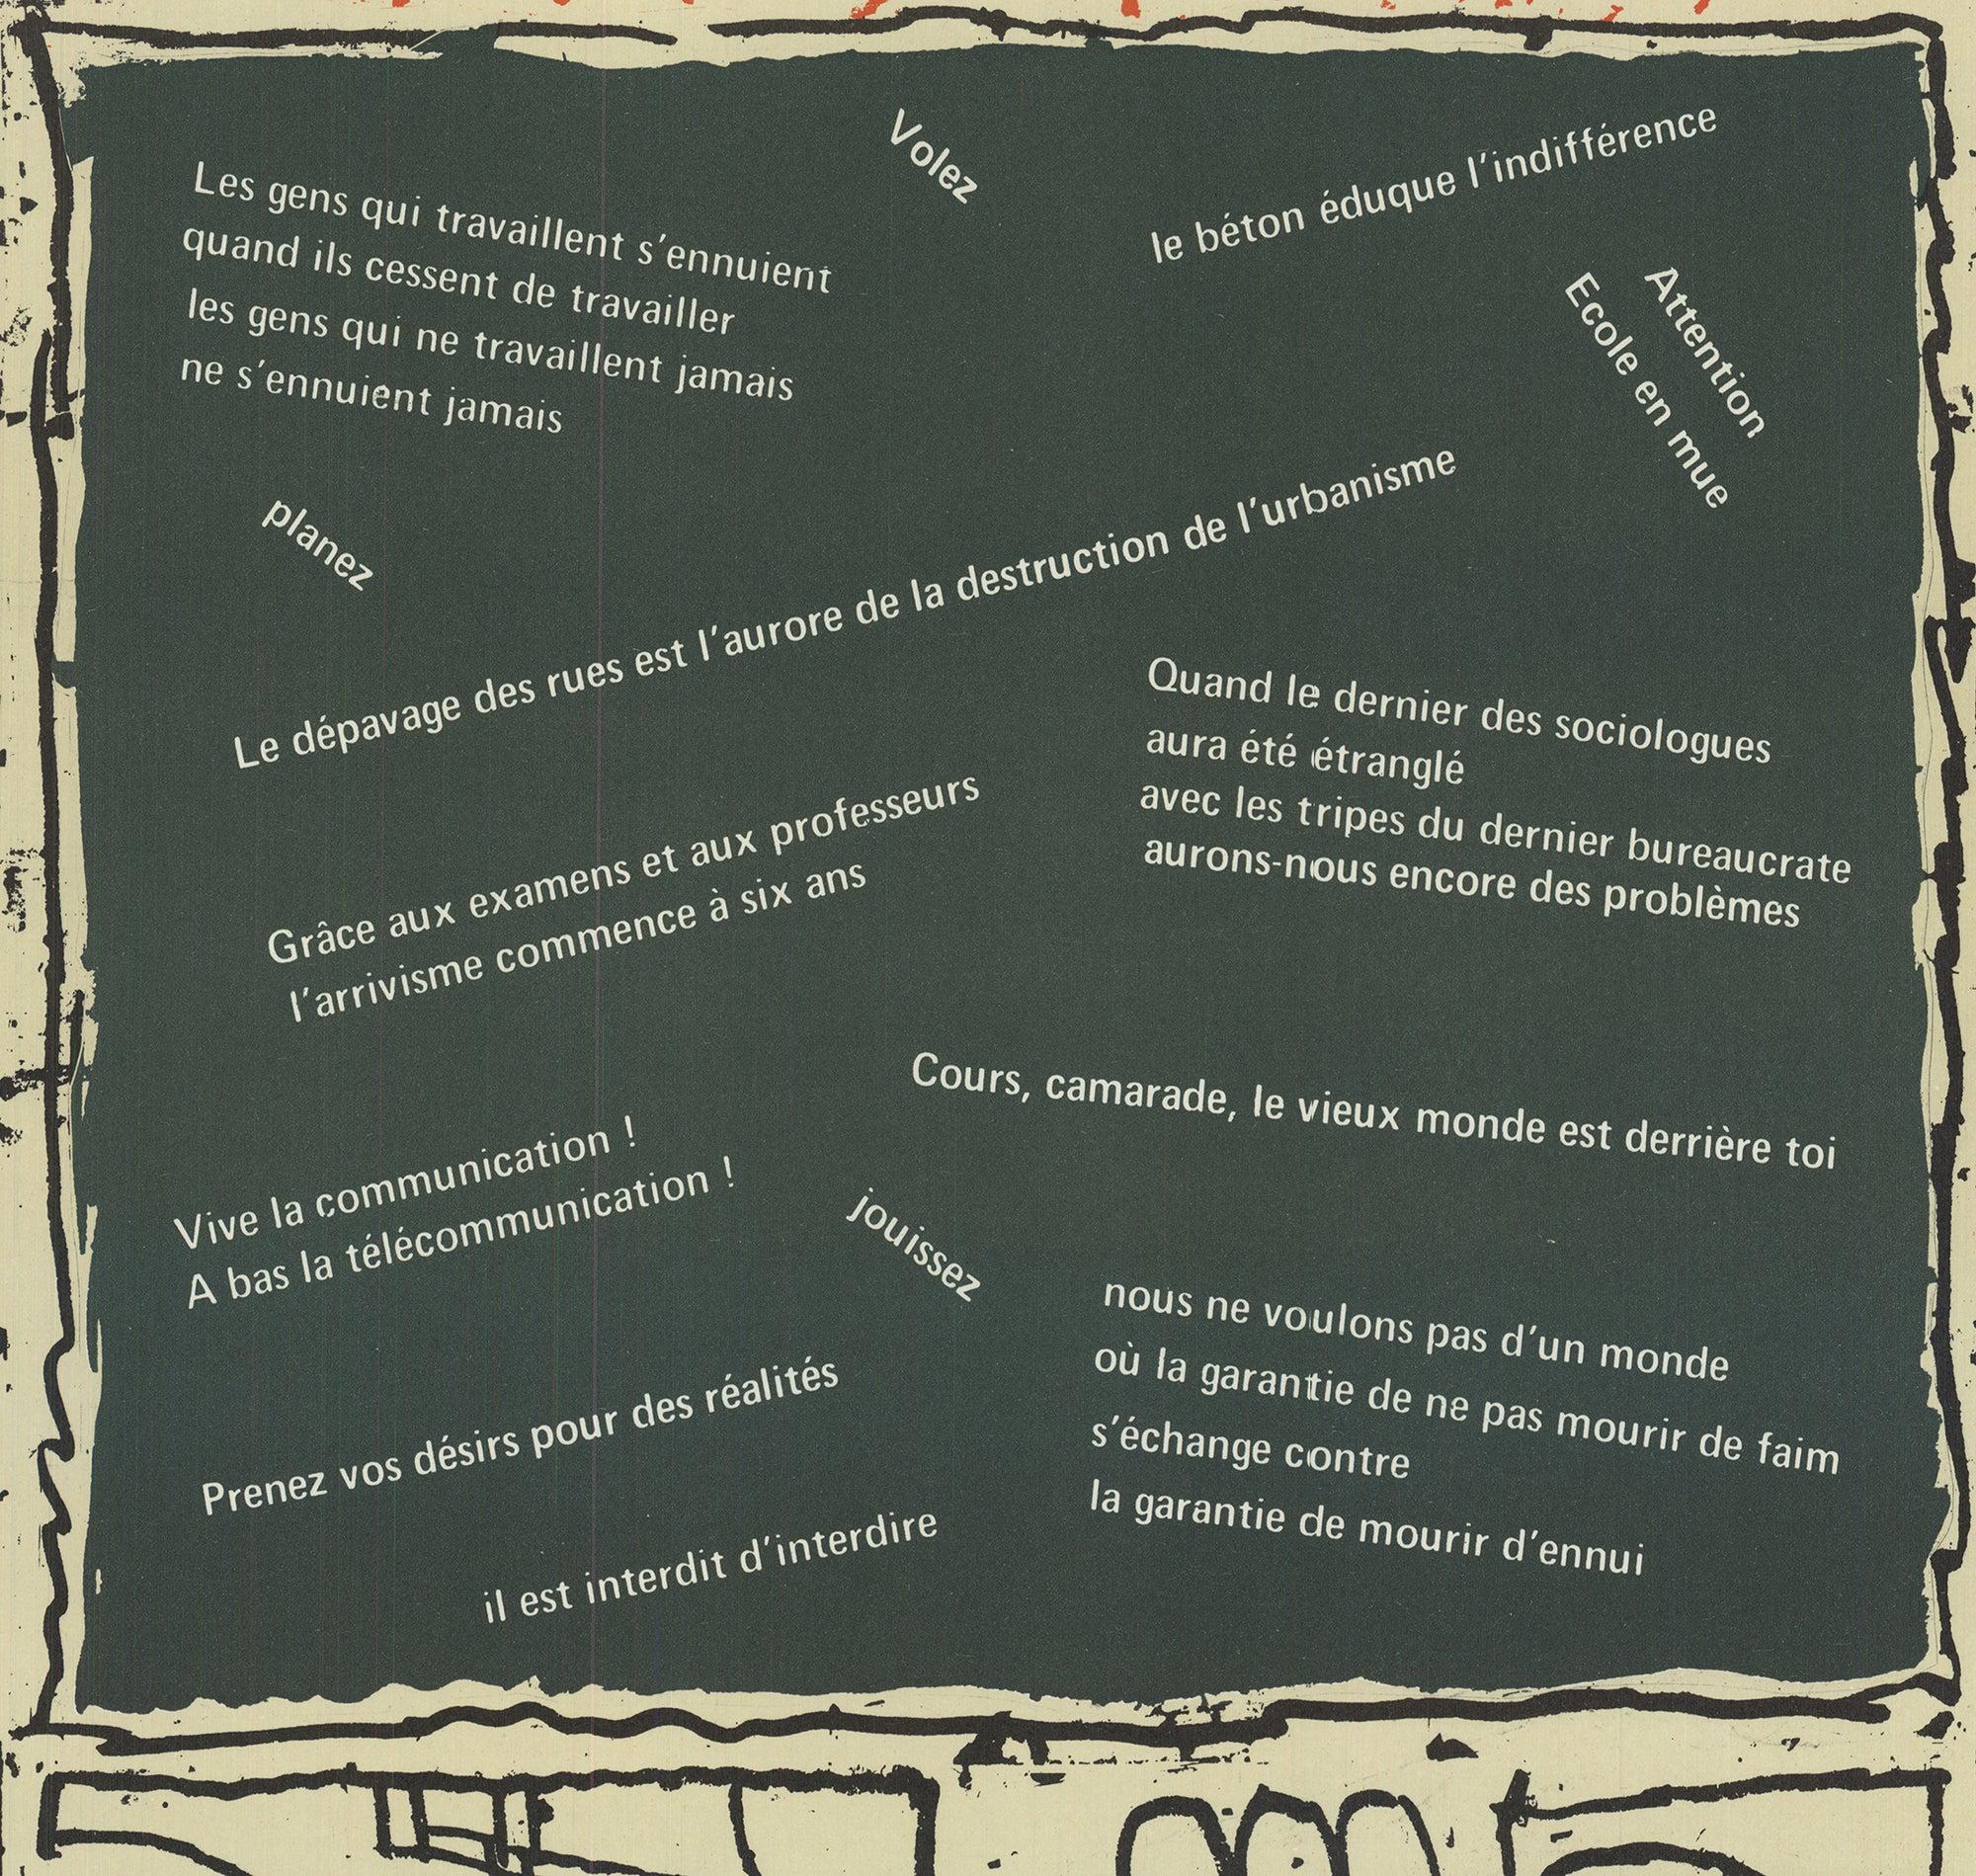 Volez
le béton éduque l'indifférence
Les gens qui travaillent s'ennuient
quand ils cessent de travailler
les gens qui ne travaillent jamais
ne s'ennuient jamais
Attention
Ecole en mue
planez
Le dépavage des rues est l'aurore de la destruction de l'urbanisme
Quand le dernier des sociologues
aura été étranglé
avec les tripes du dernier bureaucrate
aurons-nous encore des problèmes
Grâce aux examens et aux professeurs
l'arrivisme commence à six ans
Cours, camarade, le vieux monde est derrière toi
Vive la communication !
A bas la télécommunication !
jouissez
nous ne voulons pas d'un monde
où la garantie de ne pas mourir de faim
s'échange contre
la garantie de mourir d'ennui
Prenez vos désirs pour des réalités
il est interdit d'interdire